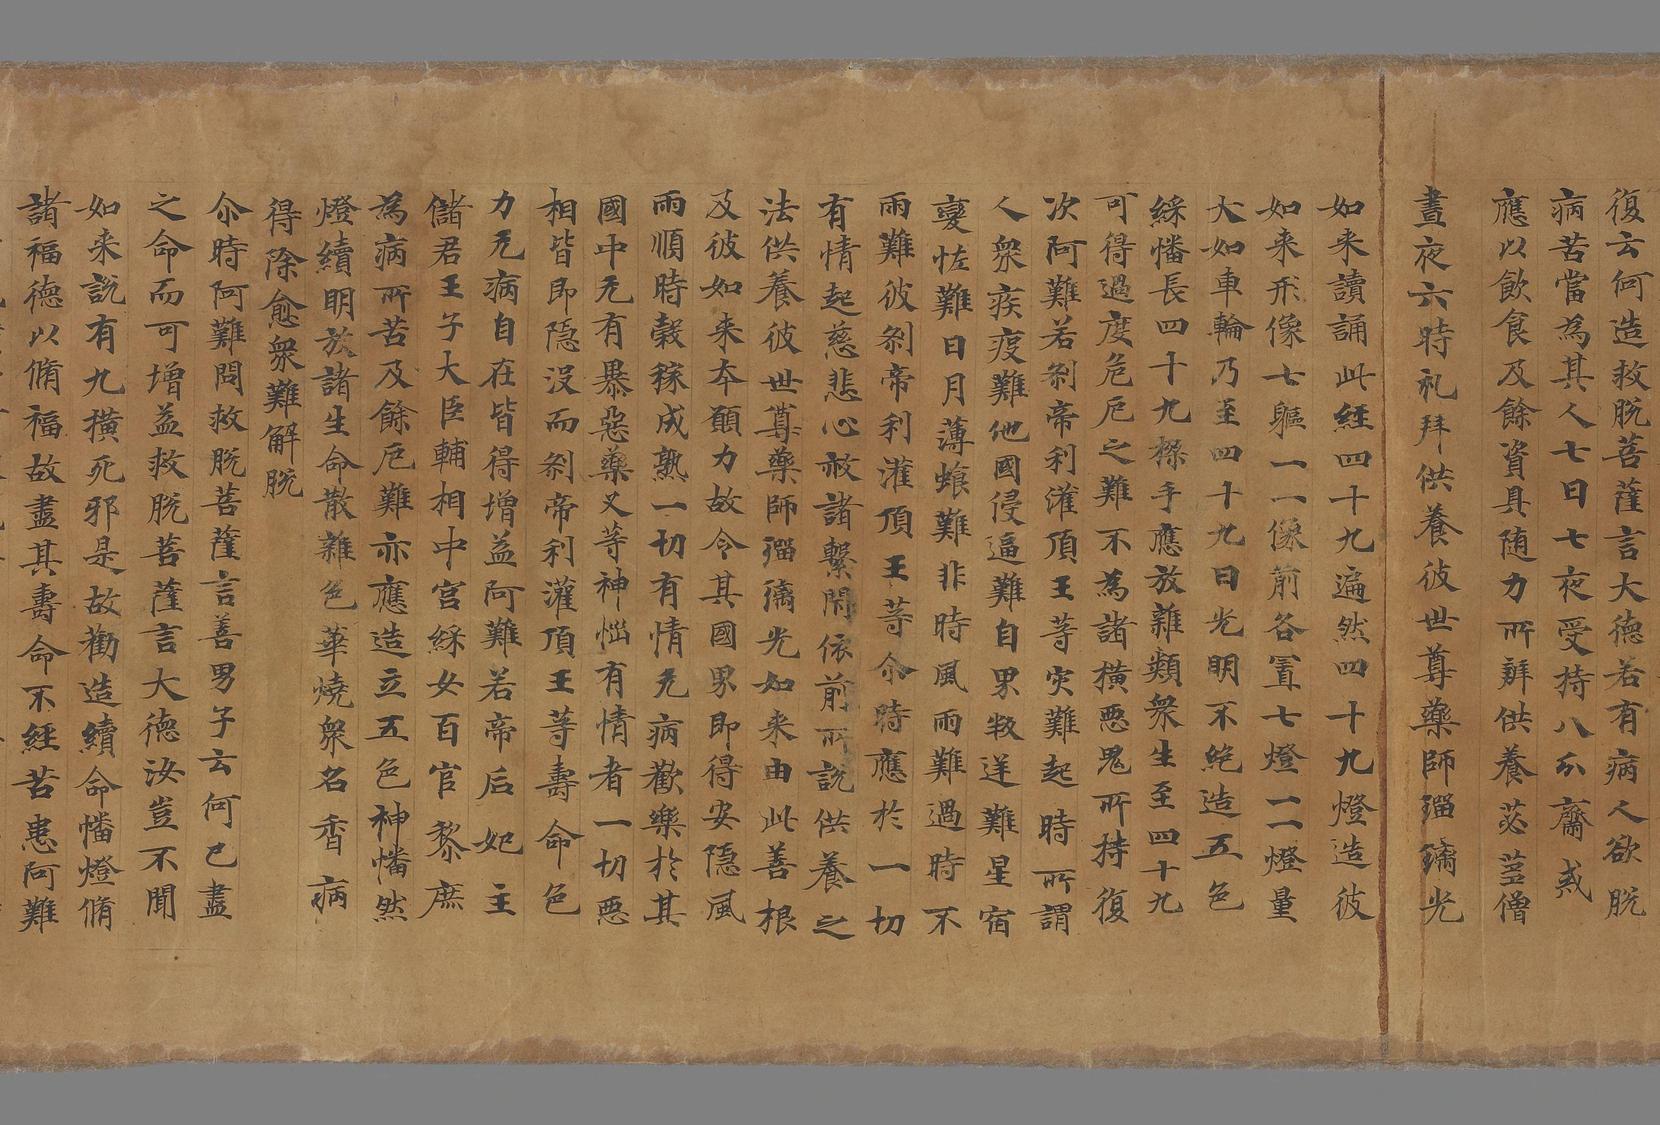 復云何造救脫菩薩言大德若有病人欲脫
病苦當為其人七日七夜受持八分齋戒
應以飲食及餘資具随力所辦供養苾芻僧
晝夜六時礼拜供養彼世尊藥師瑠璃光
如来讀誦此經四十九遍然四十九燈造彼
如来形像七軀一一像前各置七燈一一燈量
大如車輪乃至四十九日光明不絶造五色
綵幡長四十九搩手應放雜類衆生至四十九
可得過度危厄之難不為諸橫惡鬼所持復
次阿難若剎帝利灌頂王等灾難起時所謂
人衆疾疫難他國侵逼難自界叛逆難星宿
變恠難日月薄蝕難非時風雨難過時不
雨難彼剎帝利灌頂王等尒時應於一切
有情起慈悲心赦諸繫閇依前所說供養之
法供養彼世尊藥師瑠璃光如来由此善根
及彼如来本願力故令其國界即得安隱風
雨順時穀稼成熟一切有情无病歡樂於其
國中无有暴惡藥叉等神惱有情者一切惡
相皆即隱沒而剎帝利灌頂王等壽命色
力无病自在皆得增益阿難若帝后妃主
儲君王子大臣輔相中宮綵女百官黎庶
為病所苦及餘厄難亦應造立五色神幡然
燈續明放諸生命散雜色華燒衆名香病
得除愈衆難解脫
尒時阿難問救脫菩薩言善男子云何已盡
之命而可增益救脫菩薩言大德汝豈不聞
如来說有九橫死邪是故勸造續命幡燈脩
諸福德以脩福故盡其壽命不經苦患阿難